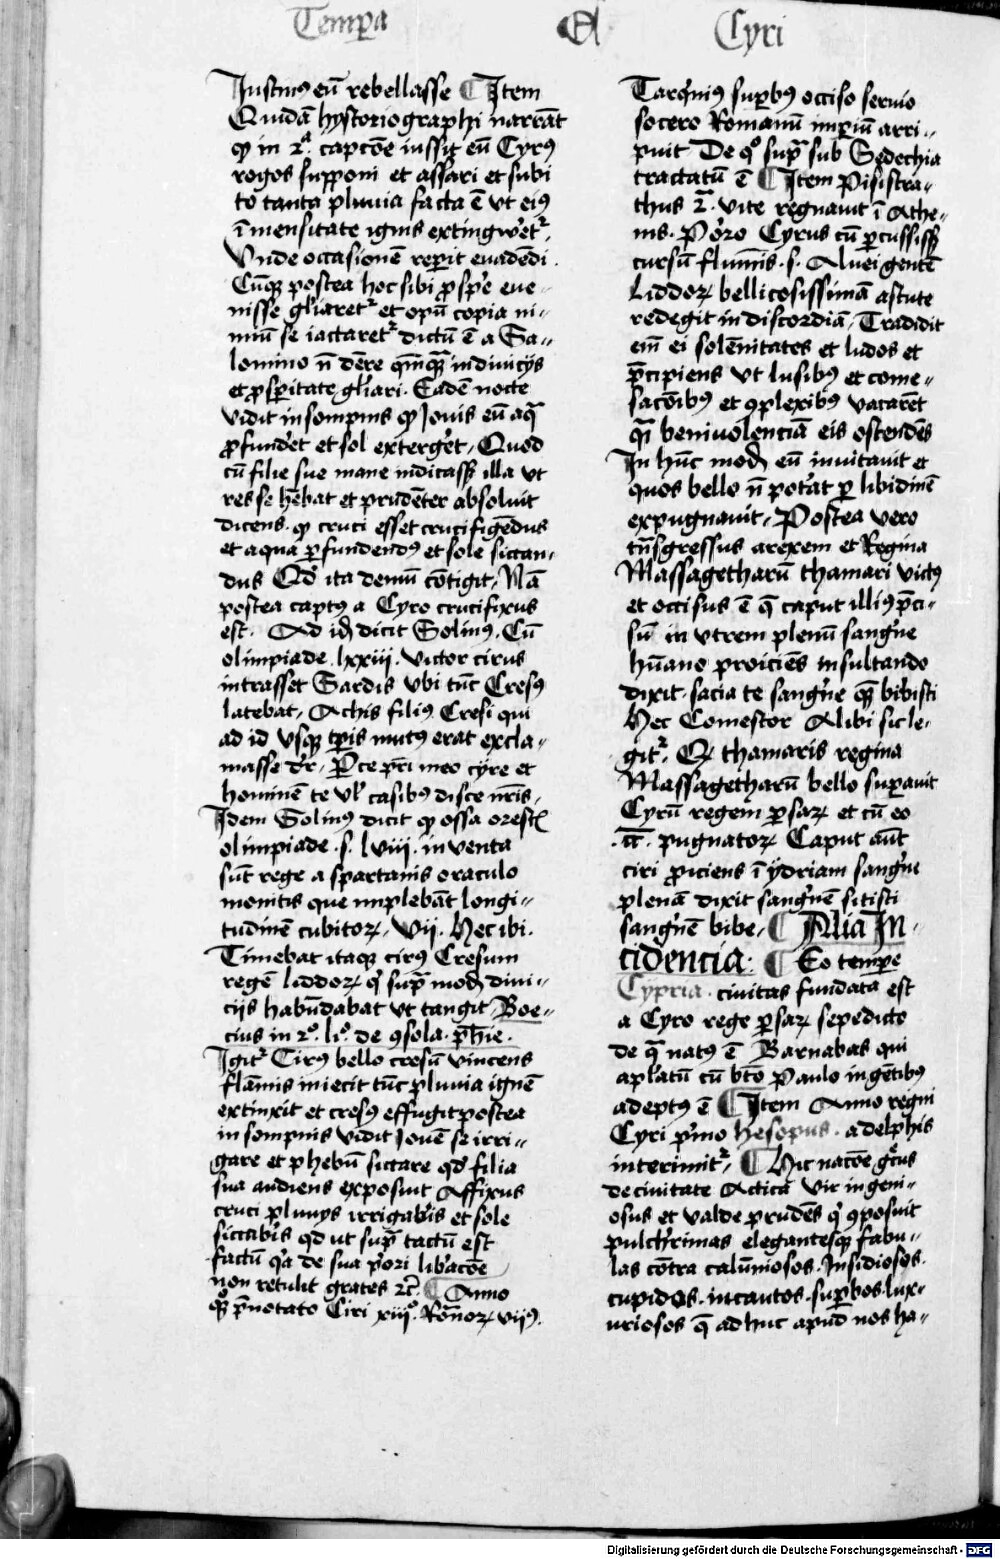 Tempa Et Cyri
Justinus eū rebellasse ¶ Item
Quidā hystoriographi narrāt
qꝫ in 2ᵃ. capcōe iussit eū Cyrꝰ
rogos supponi et assari et subi
to tanta pluuia facta ē vt eiꝰ
īmensitate ignis extingwetʳ,
Vnde occasionē reperit euadēdi.
Cūqꝫ postea hoc sibi ꝓspe eue-
nisse gliaretʳ et opū copia ni-
miū se iactaretʳ dictū ē a Sa-
lomino n̄ dēre qmꝙ in diuicijs
et ꝓspitate gliari. Eadē nocte
vidit in sompnis qꝫ Jouis eū aq̄
ꝓfundet et sol exterget, Quod
cū filie sue mane indicass illa vt
res se hēbat et prudēter absoluit
dicens. qꝫ cruci esset crucifigēdus
et aqua ꝑfundendꝰ et sole siccan-
dus Qd ita demū cōtigit, Nā
postea captꝰ a Cyro crucifixus
est. Ad id dicit Solinꝰ. Cū
olimpiade .lxxiii. victor cirus
intrasset Sardis vbi tūc Cresꝰ
latebat, Achis filiꝰ Cresi qui
ad id vsqꝫ tꝑis mutꝰ erat excla-
masse dr, Parce pri meo cyre et
hominē te vl casibꝰ disce nris,
Idem Solinꝰ dicit qꝫ ossa orestis
olimpiade .s. lviii. inventa
sūt rege a spartanis oraculo
monitis que implebāt longi-
tudinē cubitoꝝ. vii. Hec ibi.
Timebat itaqꝫ cirꝰ Cresum
regē liddoꝝ qi sup̄ mod diui-
cijs habūdabat vt tangit Boe-
cius in 2º. li°. de ꝯsola. ph̄ie.
Igitʳ Cirꝰ bello cresū vincens
flāmis iniecit tūc pluuia ignē
extinxit et cresꝰ effugit postea
in sompnis vidit Jouē se irri-
gare et phebū siccare qd filia
sua audiens exposuit Affixus
cruci pluuijs irrigabis et sole
siccabis qd ut sup̄ tactū est
factū qa de sua priori libacōe
non retulit grates ⁊c̄. ¶ Anno
quo p̄notato Ciri xiij°. Rōnoꝝ vijꝰ.
Tarqnius supbꝰ occiso seruio
socero Romanū impiū arri-
puit. De qº sup̄ sub Sedechia
tractatū ē ¶ Item Pisistra-
thus 2ᵃ. vite regnauit ī Athe-
nis. Porro Cyrus cū ꝑcussiss
cursū flumīs .s. Aluei gentē
Liddoꝝ bellicosissimā astute
redegit in discordiā, Tradidit
em̄ ei solēnitates et ludos et
p̄cipiens vt lusibꝰ et come-
sacōibꝰ et ꝯplexibꝰ vacarēt
qi beniuolenciā eis ostendēs
In hūc mod eū inuitauit et
quos bello n̄ potat ꝑ libidinē
expugnauit, Postea vero
trāsgressus arexem et Regina
Massagetharū thamari victꝰ
et occisus ē q̄ caput illiꝰ p̄ci-
sū in vtrem plenū sangne
hūano proiciēs insultando
dixit. sacia te sangne quē bibisti
Hec Comestor Alibi sic le-
gitʳ. Qꝫ thamaris regina
Massagetharū bello supauit
Cyrū regem ꝑsaꝝ et cū eo
.cc̄. pugnatoꝝ Caput aūt
ciri ꝓiciens ī ydriam sangne
plenā dixit sangnē sitisti
sangnē bibe, ¶ Alia In-
cidencia: ¶ Eo tempe
Cypria. ciuitas fundata est
a Cyro rege ꝑsaꝝ sepedicto
de q̄ natꝰ ē Barnabas qui
aplatū cū bto Paulo in gētibꝰ
adeptꝰ ē ¶ Item Anno regni
Cyri pmo Hesopus. a delphis
interimitʳ, ¶ Hic nacōe grecus
de ciuitate Actica vir ingeni-
osus et valde prudēs qi ꝯposuit
pulchrimas elegantesqꝫ fabu-
las cōtra calūniosos. Insidiosos.
cupidos. incautos. supbos. lux-
uriosos q̄ adhuc apud nos ha-
Digitalisierung gefördert durch die Deutsche Forschungsgemeinschaft - DFG